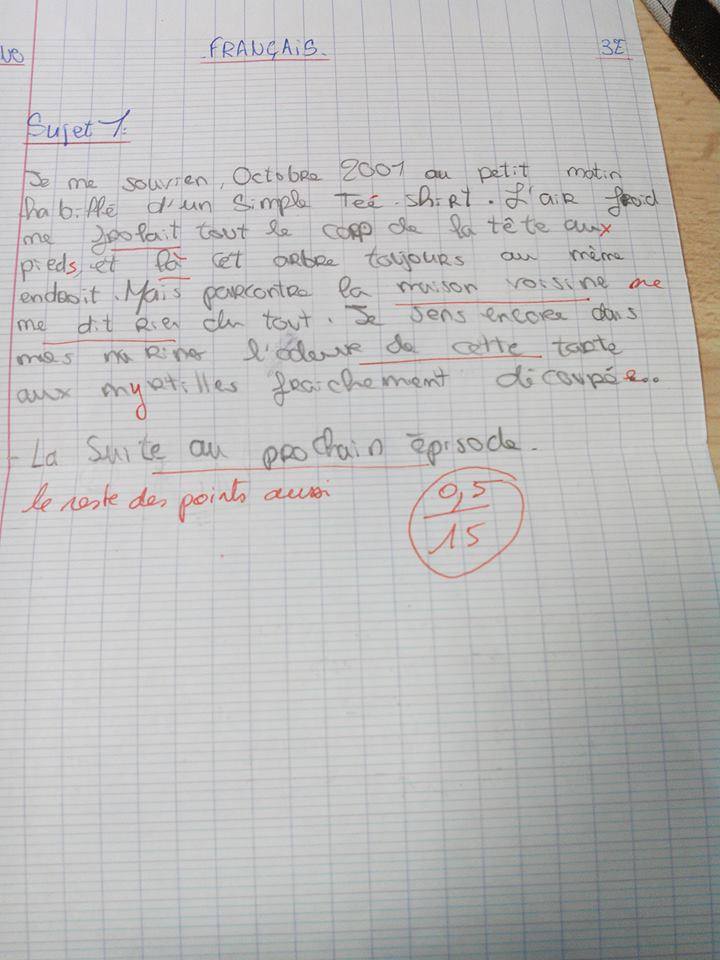 FRANÇAIS.
3E
Sujet 1:
Je me souvien, Octobre 2001 au petit matin
habillé d'un simple Teé-shirt. L'air froid
me jfofait tout le corp de la tête aux
pieds, et là cet arbre toujours au même
endroit. Mais parcontre la maison voisine ne
me dit rien du tout. Je sens encore dans
mes narines l'odeure de cette tarte
aux myrtilles fraichement découpée..
- La suite au prochain épisode.
le reste des points aussi
0,5
15